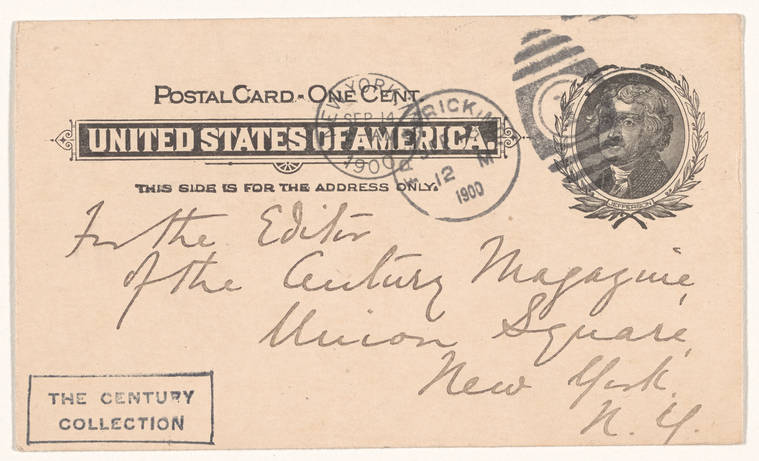 POSTAL CARD - ONE CENT
UNITED STATES OF AMERICA.
THIS SIDE IS FOR THE ADDRESS ONLY.
NEW YORK
SEP 14
1900
12 M
1900
JEFFERSON
For the Editor
of the Century Magazine,
Union Square,
New York,
N. Y.
THE CENTURY
COLLECTION